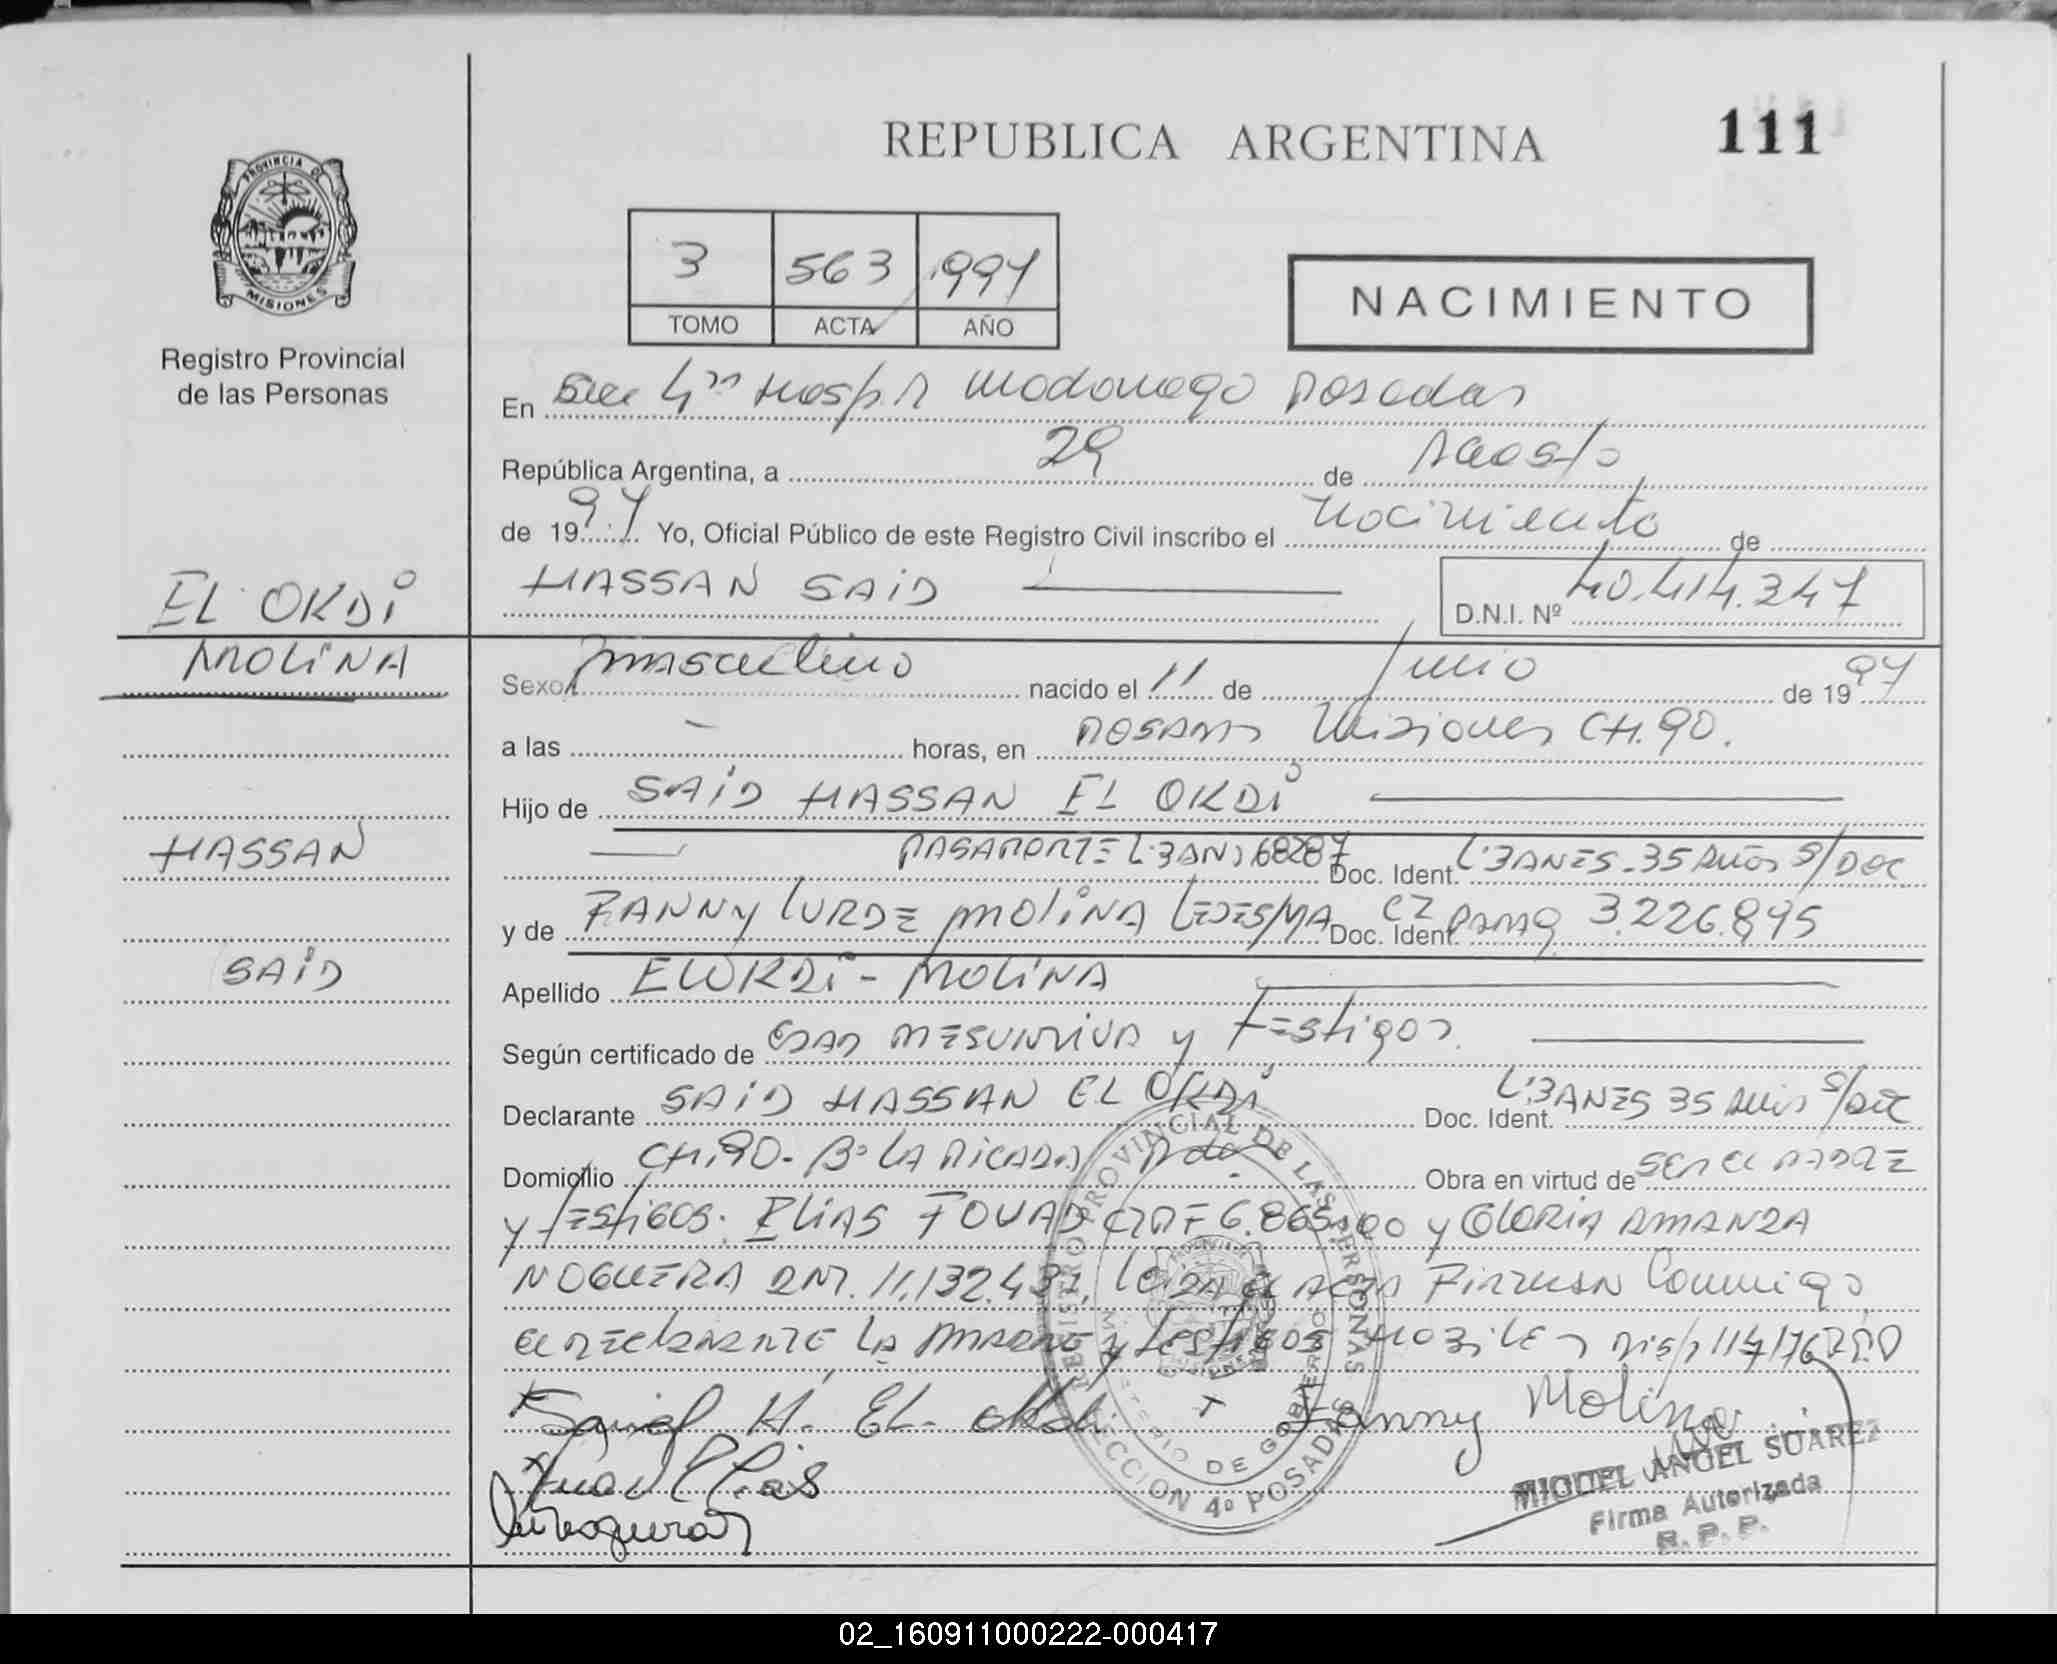 REPUBLICA ARGENTINA
111
PROVINCIA DE
MISIONES
Registro Provincial
de las Personas
3 563 1997
TOMO ACTA AÑO
NACIMIENTO
En Secc 4ª Hosp R Madariaga Posadas
República Argentina, a 29 de Agosto
de 1997 Yo, Oficial Público de este Registro Civil inscribo el Nacimiento de
HASSAN SAID
D.N.I. Nº 40.414.347
EL OKDI
MOLINA
HASSAN
SAID
Sexo masculino nacido el 11 de Junio de 1997
a las - horas, en POSADAS Misiones CH. 90.
Hijo de SAID HASSAN EL OKDI
PASAPORTE LIBANO 68287 Doc. Ident. LIBANES - 35 AÑOS S/DOC
y de FANNY LURDE MOLINA LEDESMA Doc. Ident. CI PARAG 3.226.895
Apellido EL OKDI - MOLINA
Según certificado de y TESTIGOS.
Declarante SAID HASSAN EL OKDI Doc. Ident. LIBANES 35 AÑOS S/DOC
Domicilio CH. 90 - Bº LA PICADA Pdas Obra en virtud de SER EL PADRE
y TESTIGOS: ELIAS FOUAD y GLORIA AMANDA
NOGUERA DNI. 11.132. LEIDA EL ACTA FIRMAN Conmigo
EL DECLARANTE LA MADRE y TESTIGOS
H. EL. okdi. Fanny Molina
Fuad Elias
Noguera
REGISTRO PROVINCIAL DE LAS PERSONAS
MINISTERIO DE GOBIERNO
SECCION 4º POSADAS
MIGUEL ANGEL SUAREZ
Firma Autorizada
R. P. P.
02_160911000222-000417